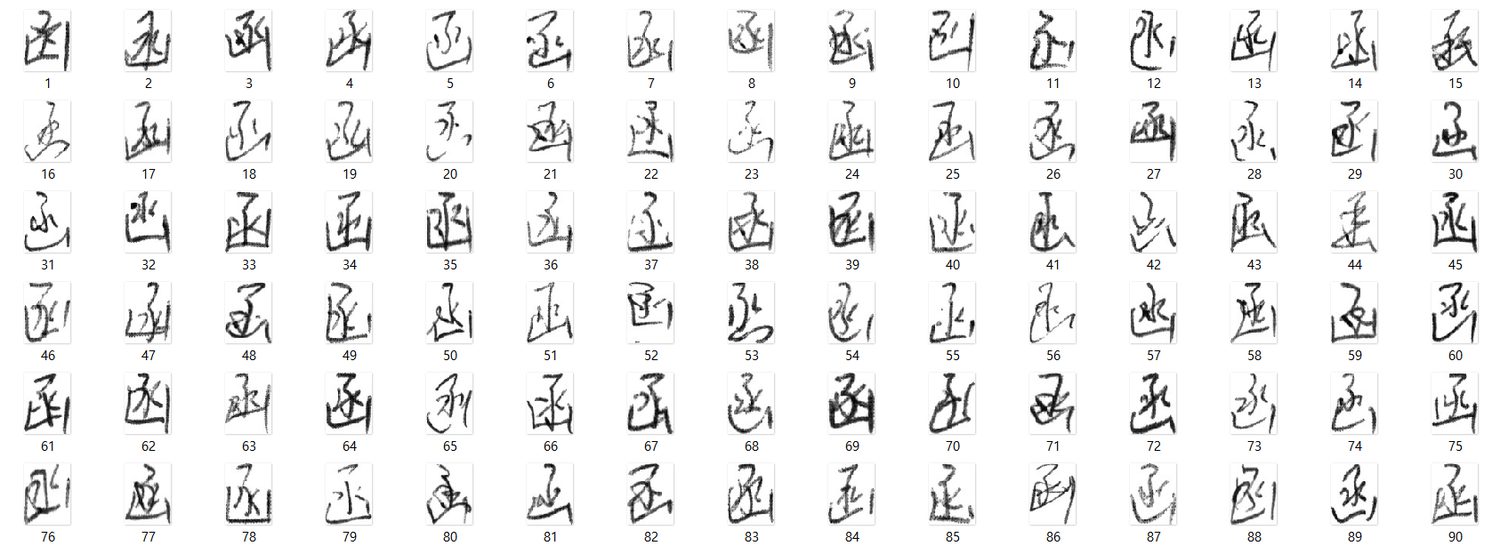 函 函 函 函 函 函 函 函 函 函 函 函 函 函 函
1 2 3 4 5 6 7 8 9 10 11 12 13 14 15
函 函 函 函 函 函 函 函 函 函 函 函 函 函 函
16 17 18 19 20 21 22 23 24 25 26 27 28 29 30
函 函 函 函 函 函 函 函 函 函 函 函 函 函 函
31 32 33 34 35 36 37 38 39 40 41 42 43 44 45
函 函 函 函 函 函 函 函 函 函 函 函 函 函 函
46 47 48 49 50 51 52 53 54 55 56 57 58 59 60
函 函 函 函 函 函 函 函 函 函 函 函 函 函 函
61 62 63 64 65 66 67 68 69 70 71 72 73 74 75
函 函 函 函 函 函 函 函 函 函 函 函 函 函 函
76 77 78 79 80 81 82 83 84 85 86 87 88 89 90